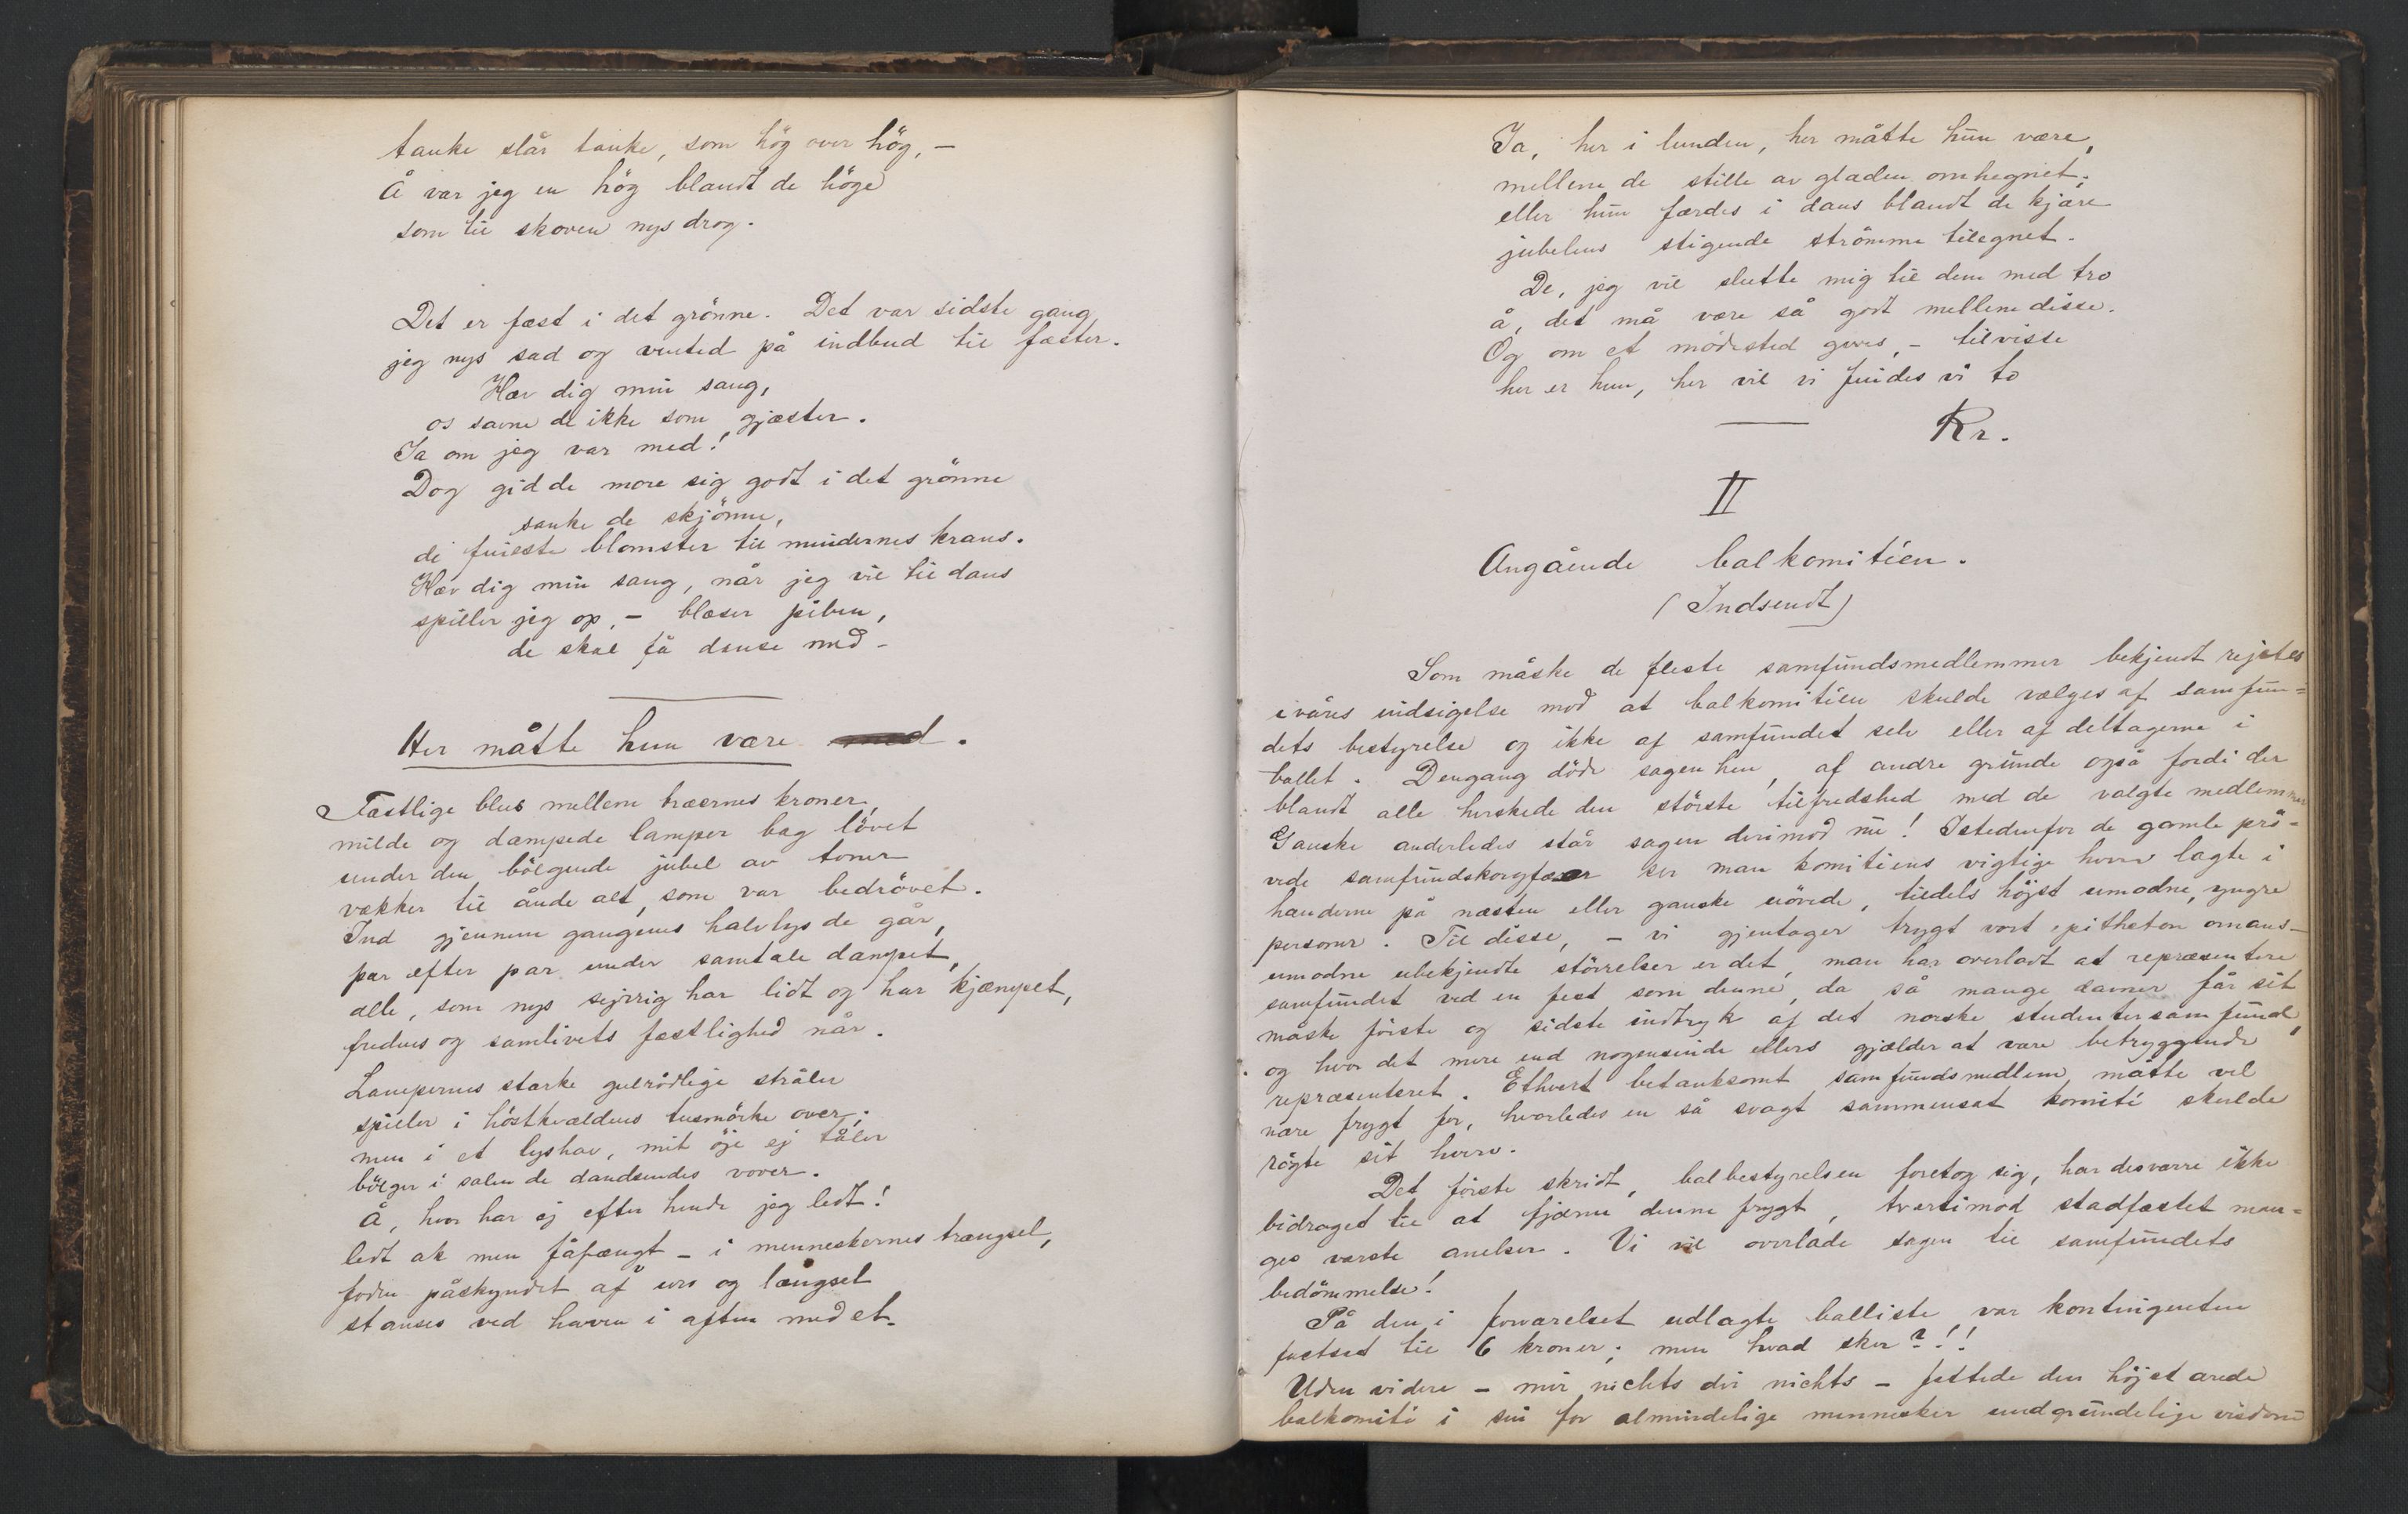 tanke slår tanke, som hög over hög, –
Å var jeg en hög blandt de höge
som til skoven nys drog.
Det er fæst i det grönne. Det var sidste gang
jeg nys sad og vented på indbud til fæster.
Hæv dig min sang,
os savne de ikke som gjæster.
Ja om jeg var med!
Dog gid de more sig godt i det grönne
sanke de skjönne,
de fineste blomster til mindernes krans.
Hæv dig min sang, når jeg vil til dans
spiller jeg op, – blæser piben,
de skal få danse med –
Her måtte hun være med.
Fæstlige blus mellem træernes kroner,
milde og dæmpede lamper bag lövet
under den bölgende jubel av toner
vækker til ånde alt, som var bedrövet.
Ind gjennem gangenes halvlys de går,
par efter par under samtale dæmpet,
alle, som nys sejrrig har lidt og har kjæmpet,
fredens og samlivets fæstlighed når.
Lampernes stærke gulrödlige stråler
spiller i höstkvældens tusmörke over;
men i et lyshav, mit öje ej tåler
bölger i salen de dandsendes vover.
Å, hvor har ej efter hende jeg ledt!
ledt ak men fåfængt – i menneskernes trængsel,
foden påskyndet af uro og længsel
stanses ved haven i aften med et.
Ja, her i lunden, her måtte hun være,
mellem de stille av glæden omhegnet;
eller hun færdes i dans blandt de kjære
jubelens stigende strömme tilegnet.
De, jeg vil slutte mig til dem med tro
å, det må være så godt mellem disse.
Og om et mödested gives, – tilvisse
her er hun, her vil vi findes vi to
Kr.
II
Angående balkomitéen.
(Indsendt)
Som måske de fleste samfundsmedlemmer bekjendt rejstes
ivåres indsigelse mod at balkomitéen skulde vælges af samfun=
dets bestyrelse og ikke af samfundet selv eller af deltagerne i
ballet. Dengang döde sagen hen, af andre grunde også fordi der
blandt alle herskede den störste tilfredshed med de valgte medlemmer
Ganske anderledes står sagen derimod nu! Istedenfor de gamle prö=
vede samfundskoryfæer ser man komitéens vigtige hverv lagte i
hænderne på næsten eller ganske uövede, tildels höjst umodne, yngre
personer. Til disse, – vi gjentager trygt vort epitheton ornans –
umodne ubekjendte störrelser er det, man har overladt at repræsentere
samfundet ved en fest som denne, da så mange damer får sit
måske förste og sidste indtryk af det norske studentersamfund,
og hvor det mere end nogensinde ellers gjælder at være betryggende
repræsenteret. Ethvert betænksomt samfundsmedlem måtte vel
nære frygt for, hvorledes en så svagt sammensat komité skulde
rögte sit hverv.
Det förste skridt, balbestyrelsen foretog sig, har desværre ikke
bidraget til at fjærne denne frygt, tværtimod stadfæstet man=
ges værste anelser. Vi vil overlade sagen til samfundets
bedömmelse!
På den i forværelset udlagte balliste var kontingenten
fastsat til 6 kroner; men hvad sker?!!
Uden videre – mir nichts dir nichts – fattede den höjst ærede
balkomité i sin for almindelige mennesker uudgrundelige visdom